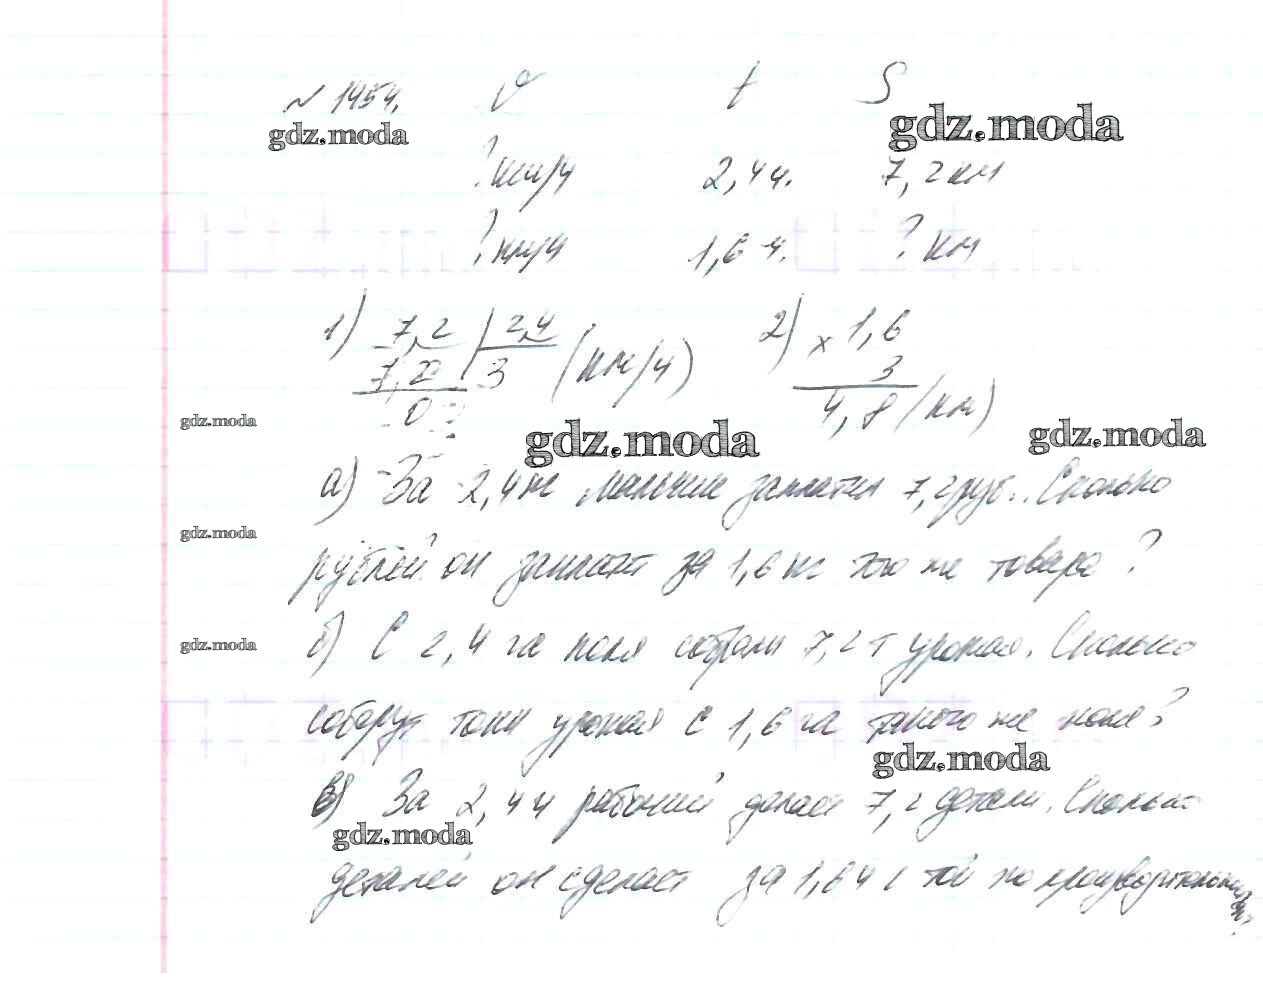 № 1454. v t S
gdz.moda gdz.moda
? км/ч 2,4 ч. 7,2 км
? км/ч 1,6 ч. ? км
1) 7,2 | 2,4 2) × 1,6
7,2 3 (км/ч) 3
0 4,8 (км)
gdz.moda gdz.moda gdz.moda
а) За 2,4 кг мальчик заплатил 7,2 руб. Сколько
gdz.moda
рублей он заплатит за 1,6 кг того же товара?
б) С 2,4 га поля собрали 7,2 т урожая. Сколько
gdz.moda
соберут тонн урожая с 1,6 га такого же поля?
gdz.moda
в) За 2,4 ч рабочий делает 7,2 детали. Сколько
gdz.moda
деталей он сделает за 1,6 ч с той же